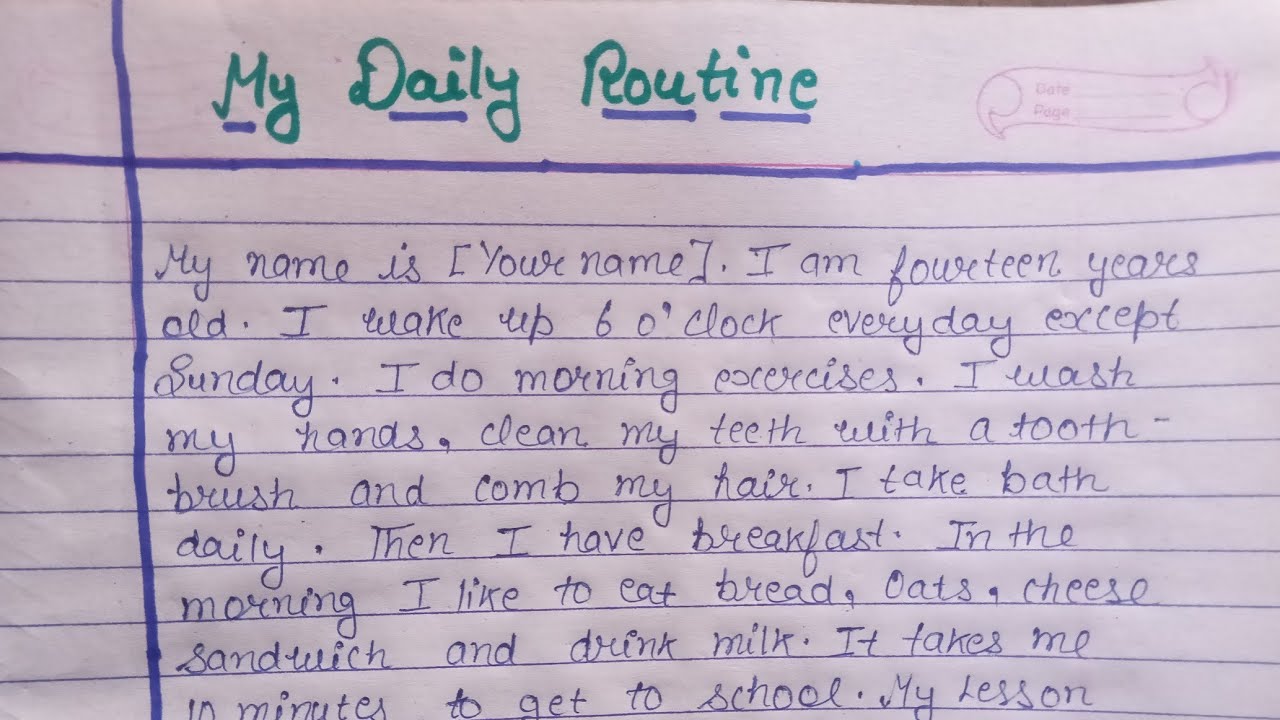 My Daily Routine
Date
Page
My name is [Your name]. I am fourteen years
old. I wake up 6 o'clock everyday except
Sunday. I do morning exercises. I wash
my hands, clean my teeth with a tooth-
brush and comb my hair. I take bath
daily. Then I have breakfast. In the
morning I like to eat bread, Oats, cheese
sandwich and drink milk. It takes me
10 minutes to get to school. My Lesson